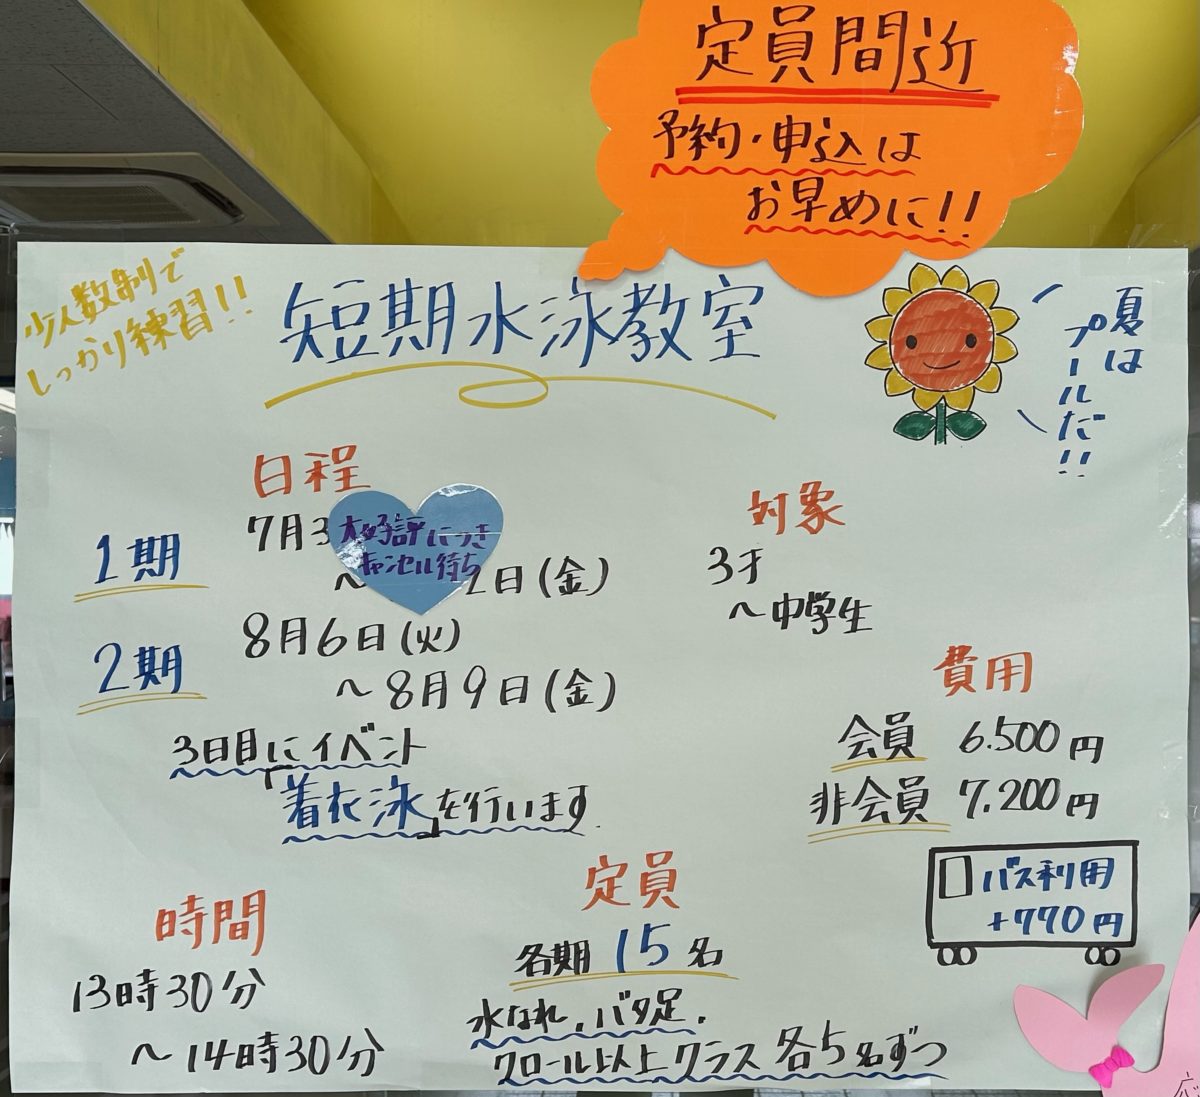 定員間近
予約・申込は
お早めに!!
少人数制で
しっかり練習!!
短期水泳教室
夏は
プールだ!!
日程
1期
7月3
大好評につき
キャンセル待ち
〜 2日(金)
2期
8月6日(火)
〜8月9日(金)
3日目にイベント
「着衣泳」を行います
対象
3才
〜中学生
費用
会員 6.500円
非会員 7.200円
バス利用
+770円
時間
13時30分
〜14時30分
定員
各期 15名
水なれ、バタ足、
クロール以上クラス 各5名ずつ